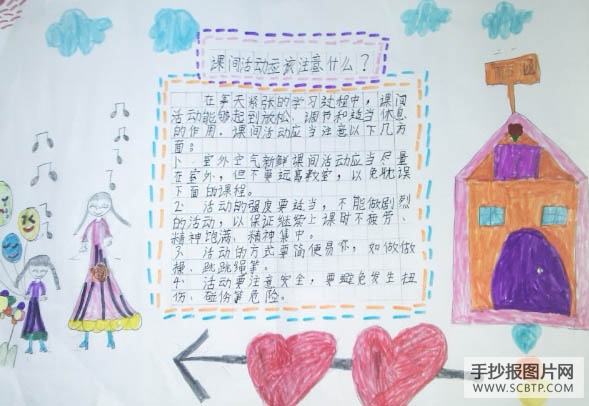 课间活动应该注意什么？
在每天紧张的学习过程中，课间
活动能够起到放松、调节和适当休息
的作用。课间活动应当注意以下几方
面：
1、室外空气新鲜课间活动应当尽量
在室外，但不要远离教室，以免耽误
下面的课程。
2、活动的强度要适当，不能做剧烈
的活动，以保证继续上课时不疲劳、
精神饱满、精神集中。
3、活动的方式要简便易行，如做做
操、跳跳绳等。
4、活动要注意安全，要避免发生扭
伤、碰伤等危险。
手抄报图片网
WWW.SCBTP.COM